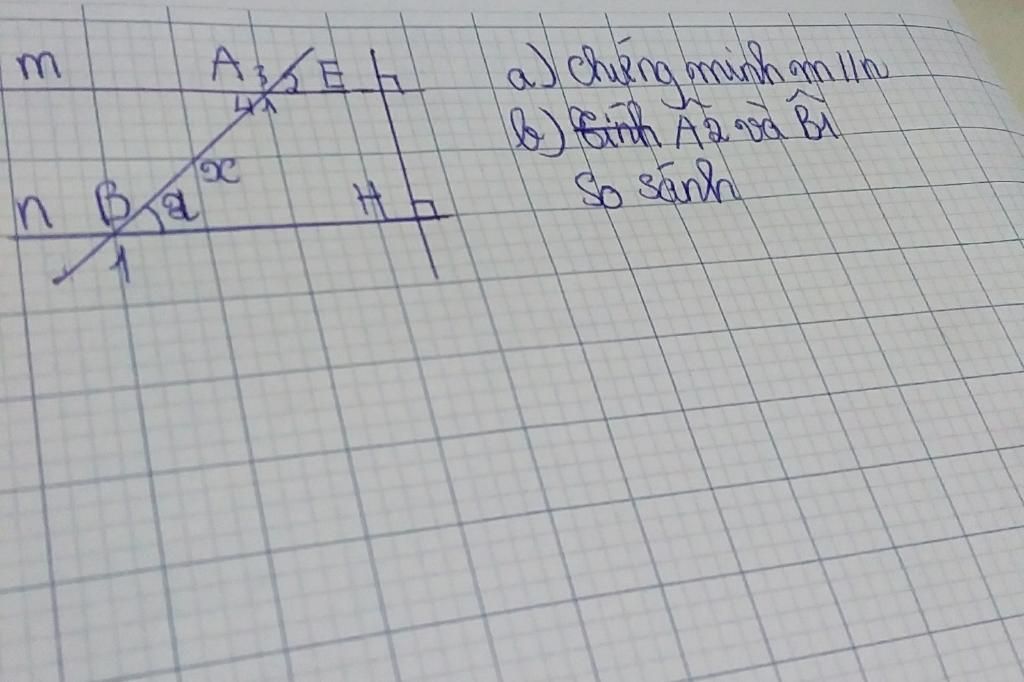 m A 3 2 E
4 1
x
n B 2 H
1
a) chứng minh m // n
b) tính Â2 và B̂1
So sánh